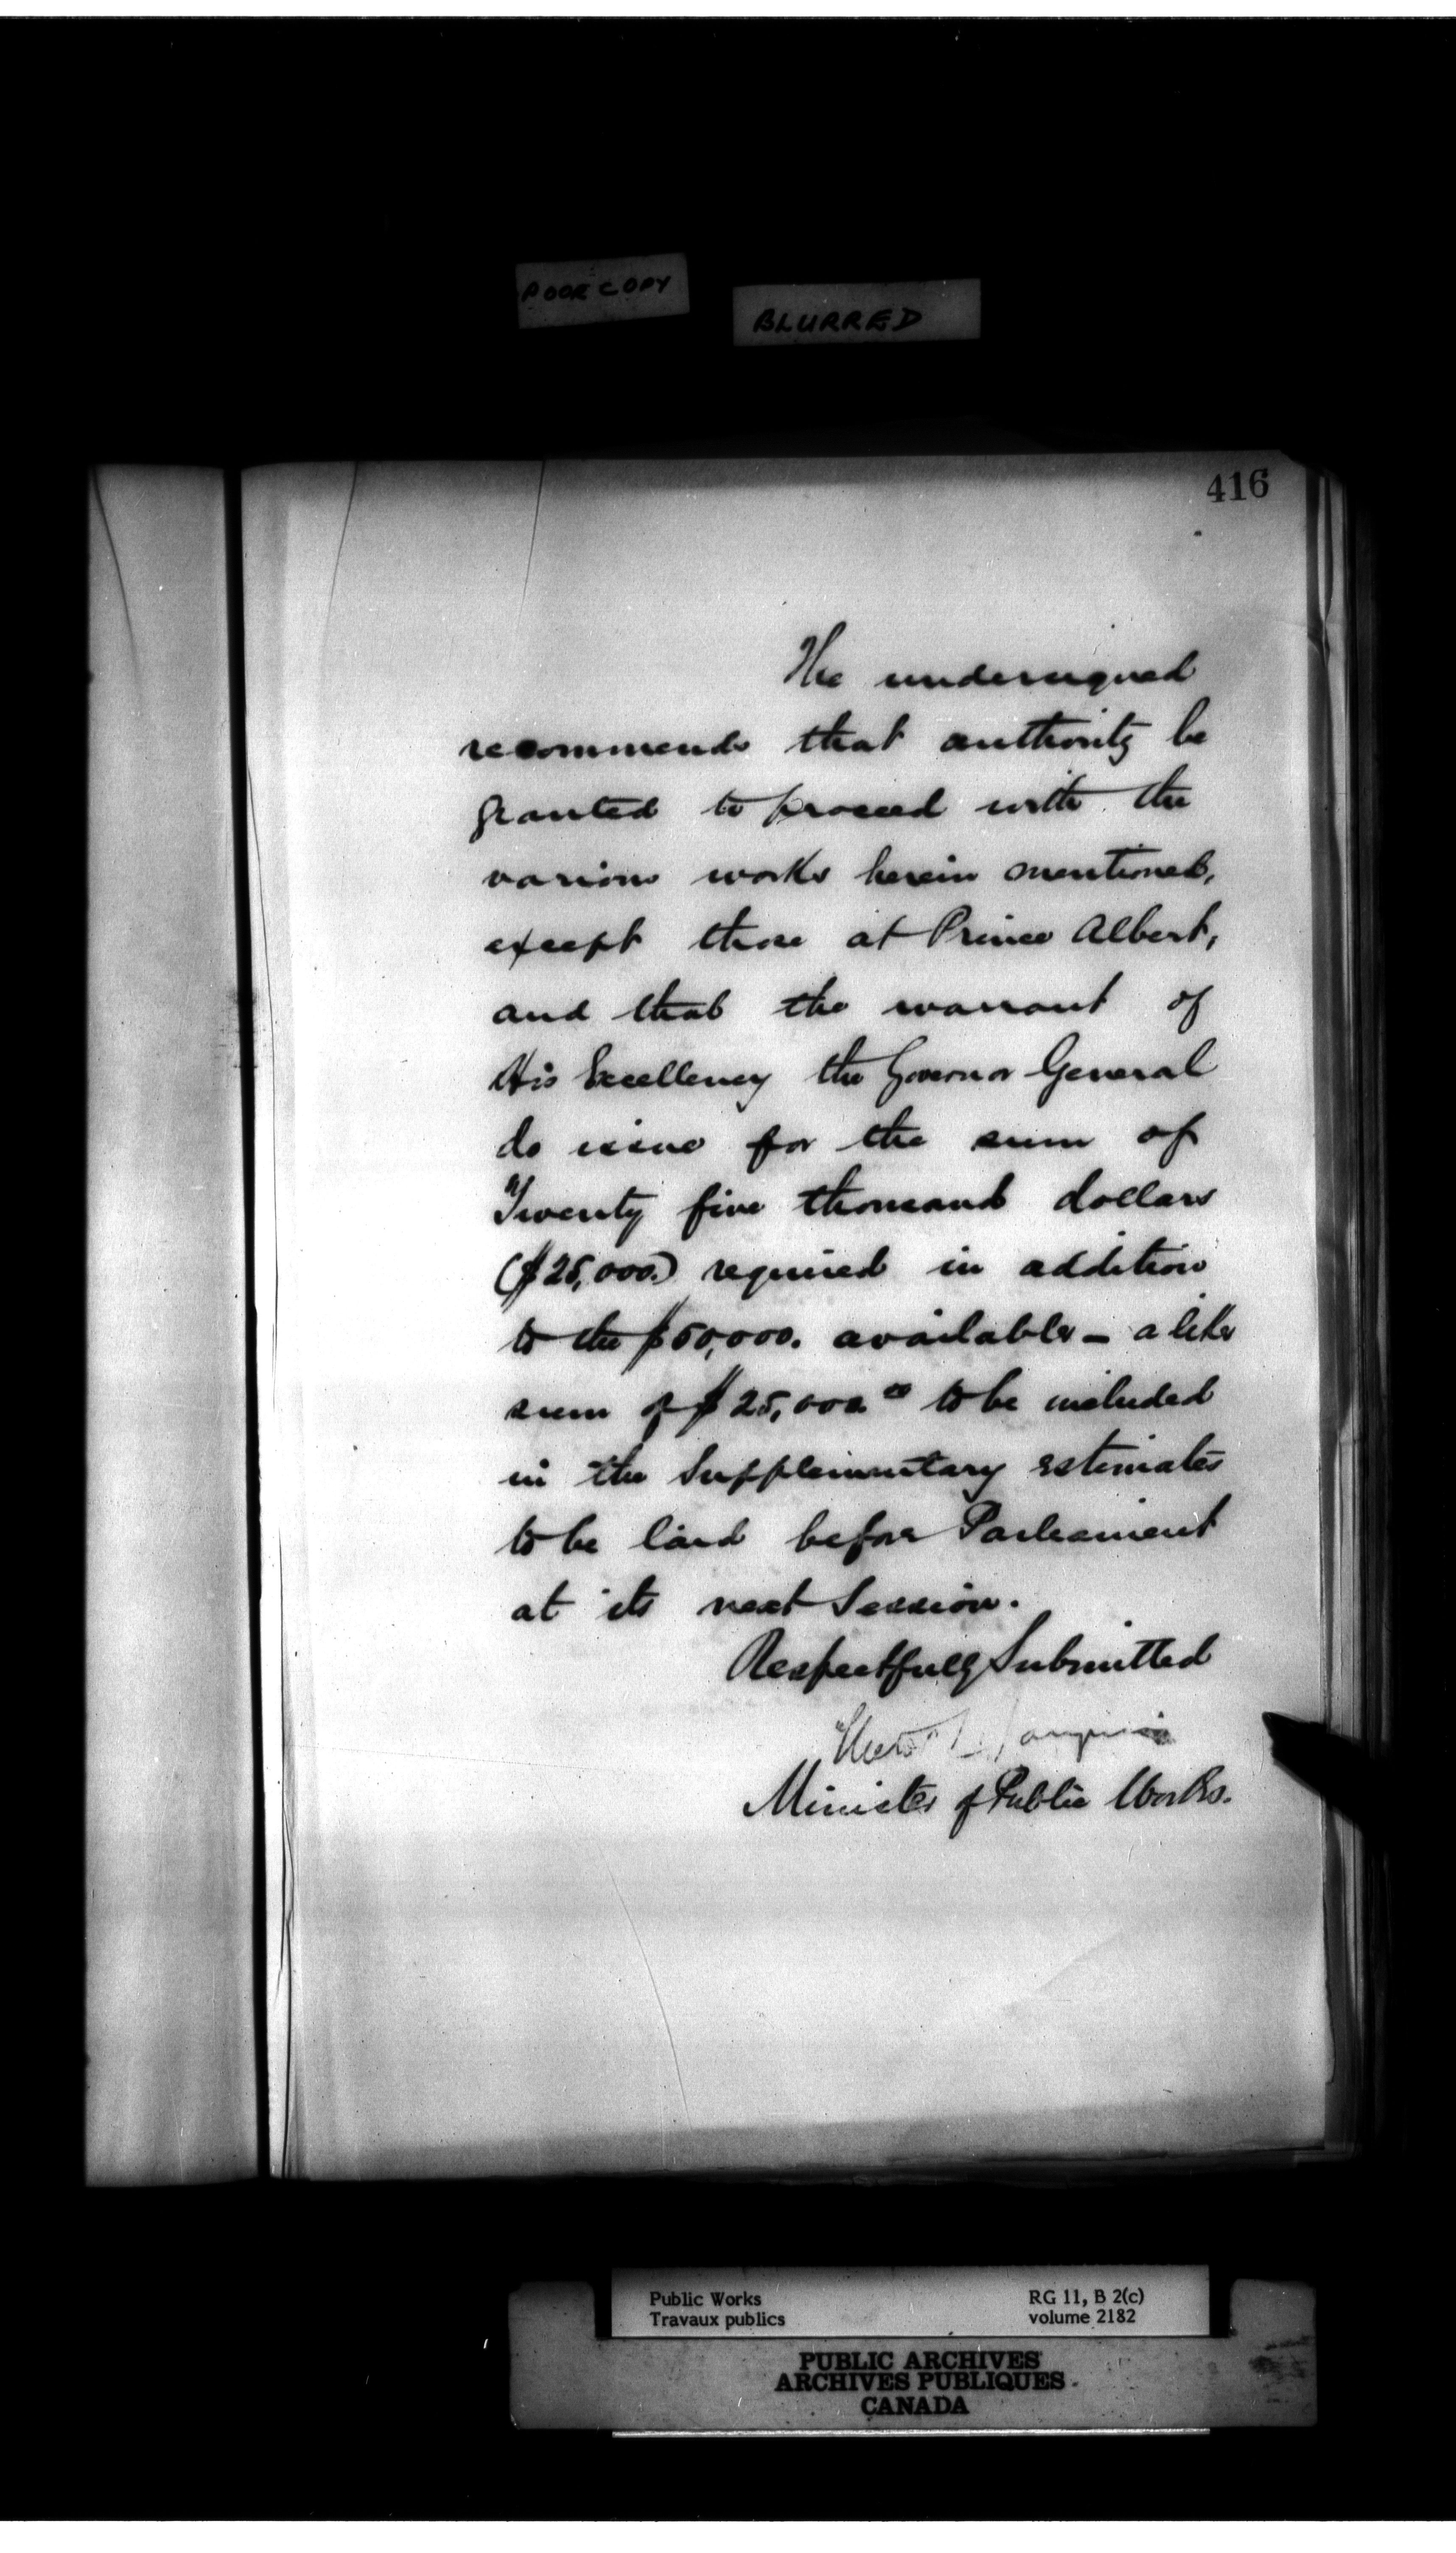 POOR COPY
BLURRED
416
The undersigned
recommends that authority be
granted to proceed with the
various works herein mentioned,
except those at Prince Albert,
and that the warrant of
His Excellency the Governor General
do issue for the sum of
Twenty five thousand dollars
($25,000.) required in addition
to the $50,000. available - a like
sum of $25,000.00 to be included
in the Supplementary estimates
to be laid before Parliament
at its next Session.
Respectfully Submitted
Minister of Public Works.
Public Works
Travaux publics
RG 11, B 2(c)
volume 2182
PUBLIC ARCHIVES
ARCHIVES PUBLIQUES
CANADA